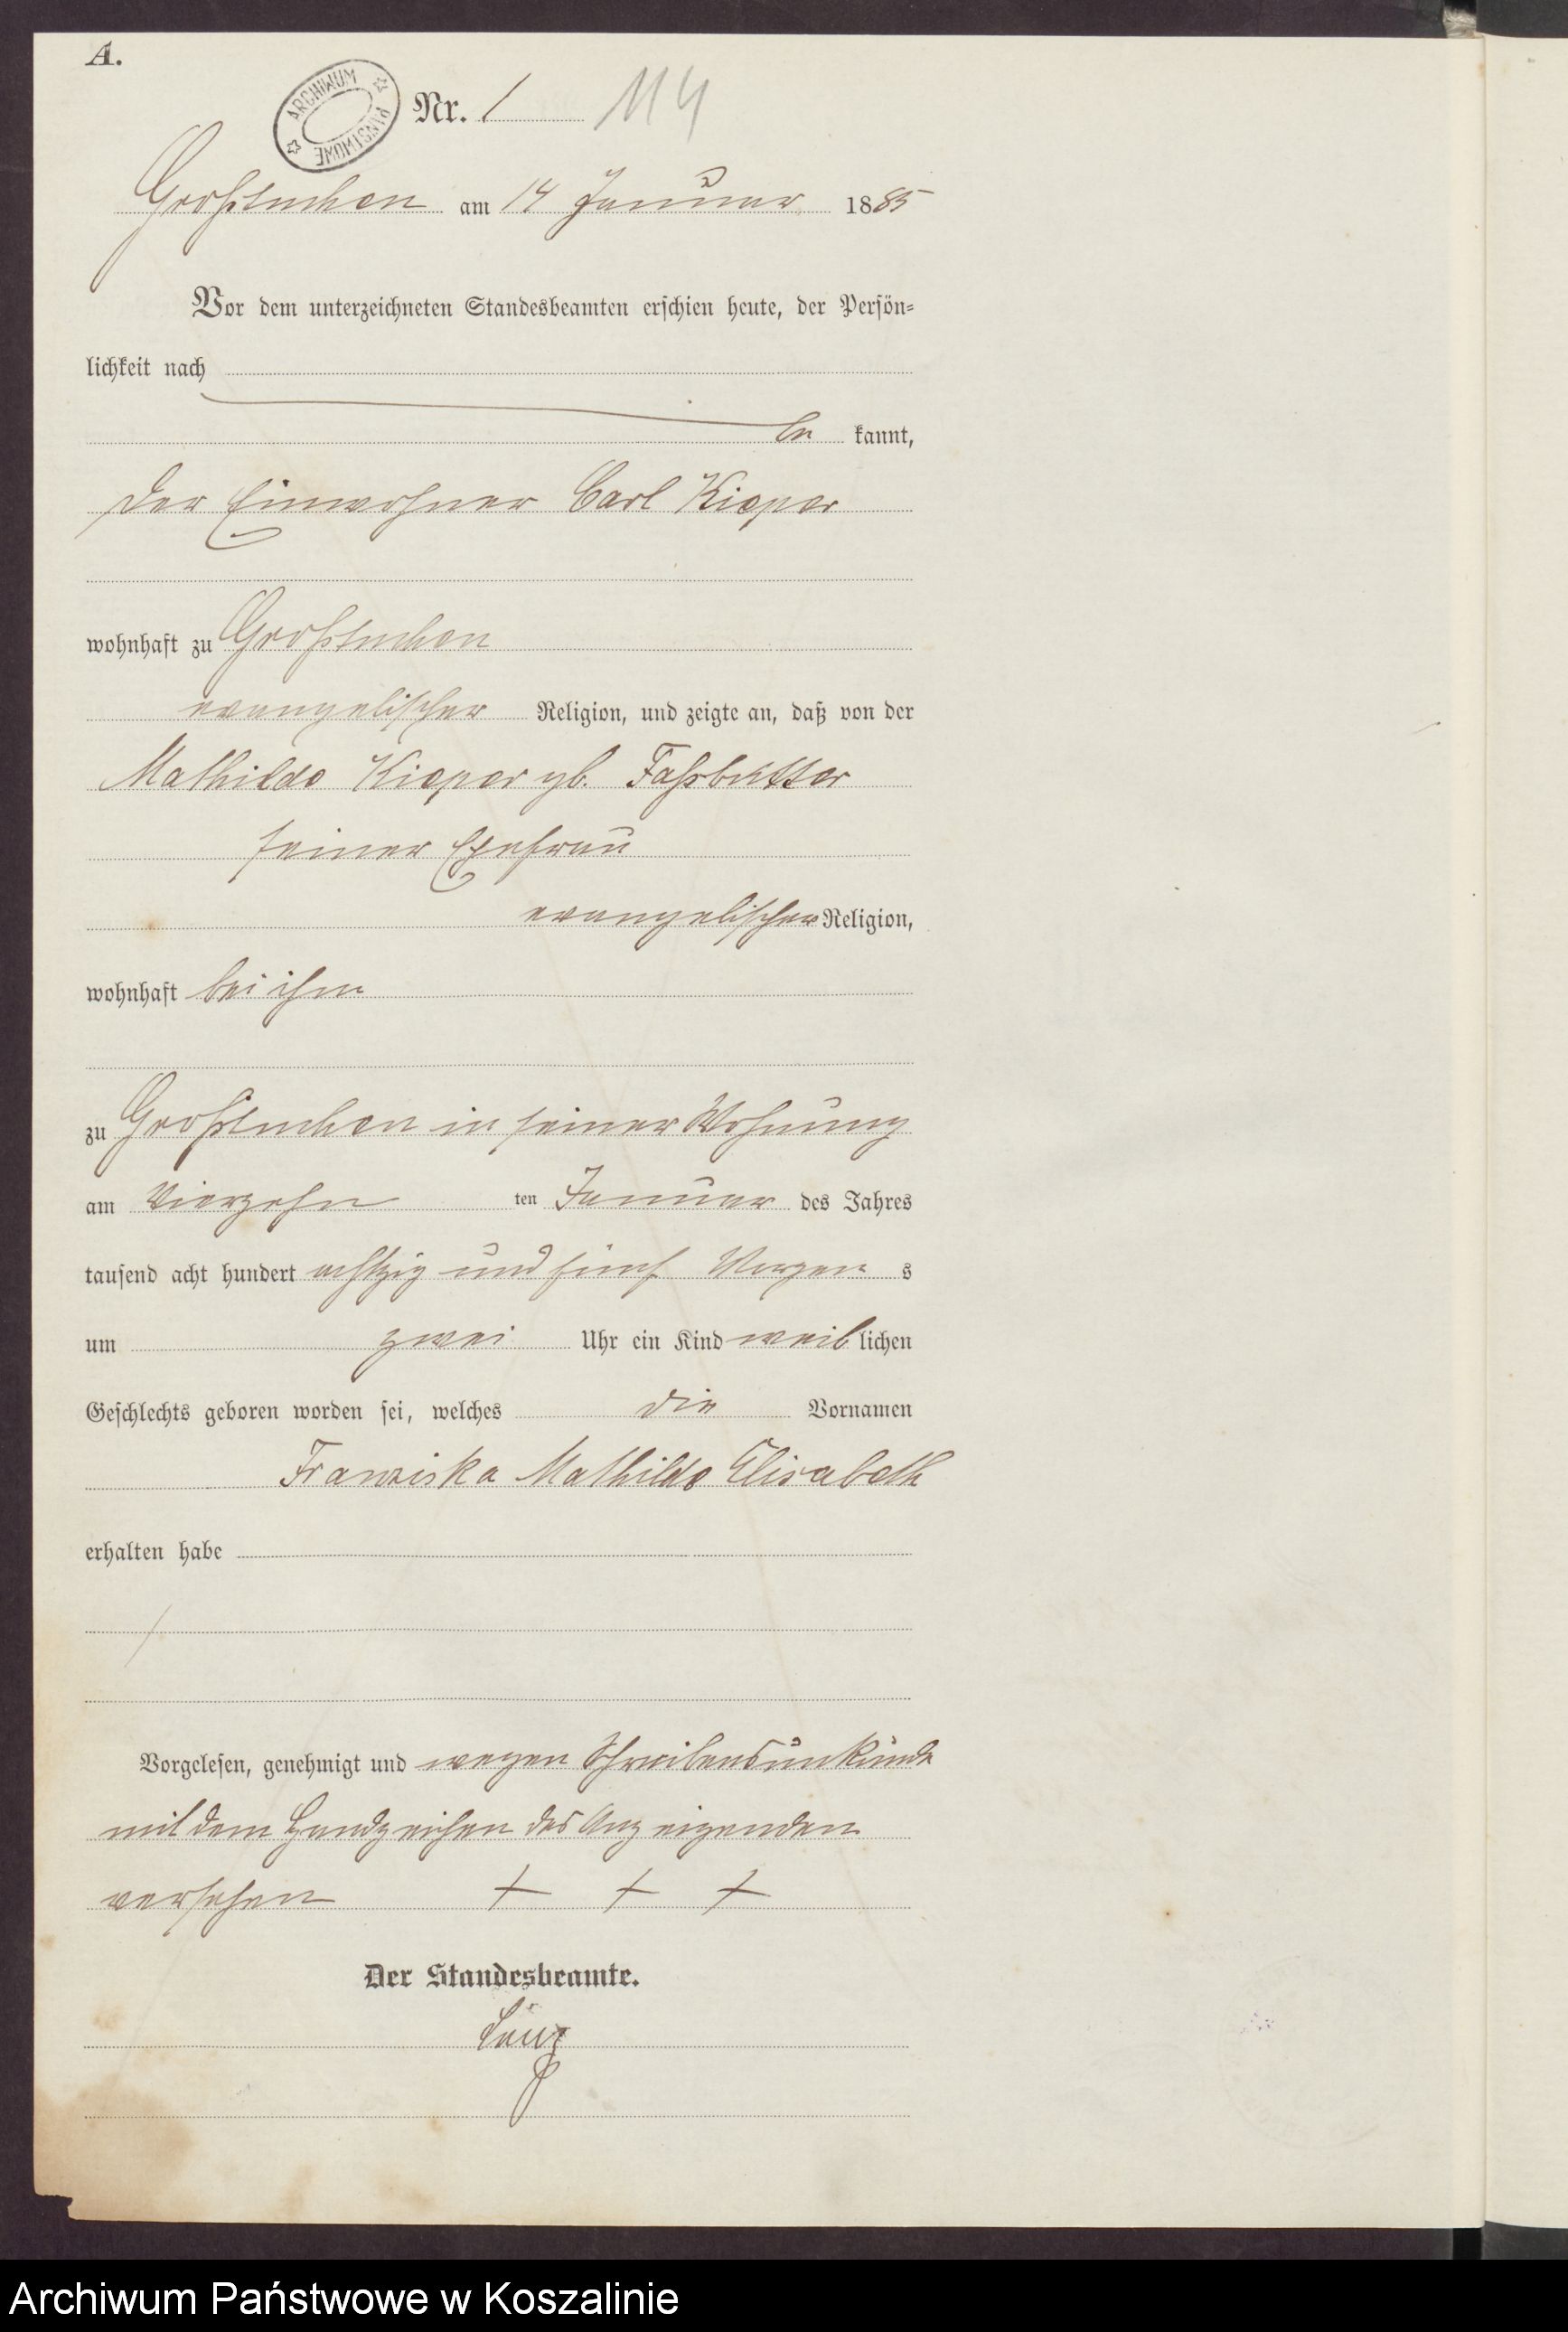 A.
ARCHIWUM PAŃSTWOWE
Nr. 1 114
Großtuchen am 14 Januar 1885
Vor dem unterzeichneten Standesbeamten erschien heute, der Persön=
lichkeit nach
be kannt,
der Einwohner Carl Kieper
wohnhaft zu Großtuchen
evangelischer Religion, und zeigte an, daß von der
Mathilde Kieper gb. Faßbutter
seiner Ehefrau
evangelischer Religion,
wohnhaft bei ihm
zu Großtuchen in seiner Wohnung
am Vierzehn ten Januar des Jahres
tausend acht hundert achtzig und fünf Morgen s
um zwei Uhr ein Kind weib lichen
Geschlechts geboren worden sei, welches die Vornamen
Franziska Mathilde Elisabeth
erhalten habe
Vorgelesen, genehmigt und wegen Schreibensunkunde
mit dem Handzeichen des Anzeigenden
versehen + + +
Der Standesbeamte.
Archiwum Państwowe w Koszalinie